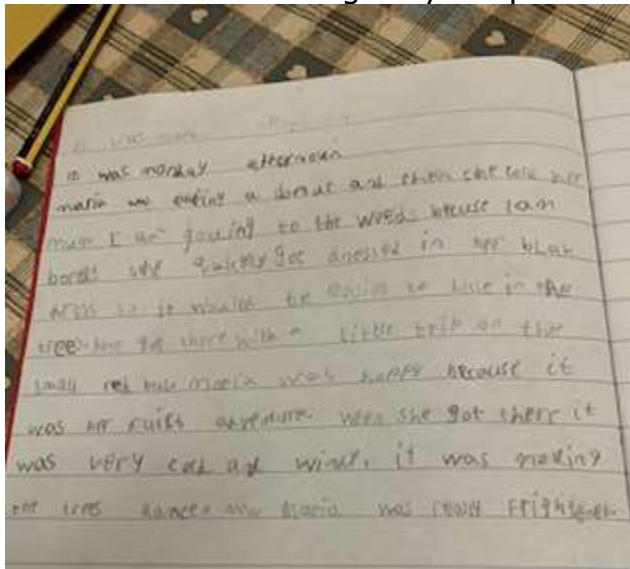 it was monday afternoon
maria was eating a donut and then she told her
mum I am gowing to the woods becuse I am
bored! she quickly got dressed in her
dress so it would be to hide in the
tree she got there with a little trip on the
small red bus maria was happy because it
was her adventure. wen she got there it
was very cold and windy. it was making
the trees dance maria was really